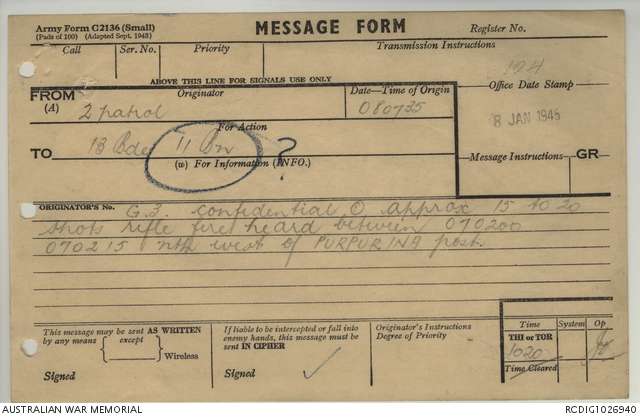 Army Form C2136 (Small)
(Pads of 100) (Adapted Sept. 1943)
MESSAGE FORM
Register No.
Call Ser. No. Priority Transmission Instructions
194
ABOVE THIS LINE FOR SIGNALS USE ONLY
FROM Originator Date—Time of Origin Office Date Stamp
(A) 2 patrol 080735
8 JAN 1945
For Action
TO 13 Bde 11 Bn ?
(W) For Information (INFO.) Message Instructions GR
ORIGINATOR'S No. G.3. confidential O approx 15 to 20
shots rifle fire heard between 070200
070215 nth west of PURPURING post
This message may be sent AS WRITTEN
by any means except
Wireless
Signed
If liable to be intercepted or fall into
enemy hands, this message must be
sent IN CIPHER
Signed ✓
Originator's Instructions
Degree of Priority
Time System Op
THI or TOR
1020
Time Cleared
AUSTRALIAN WAR MEMORIAL RCDIG1026940